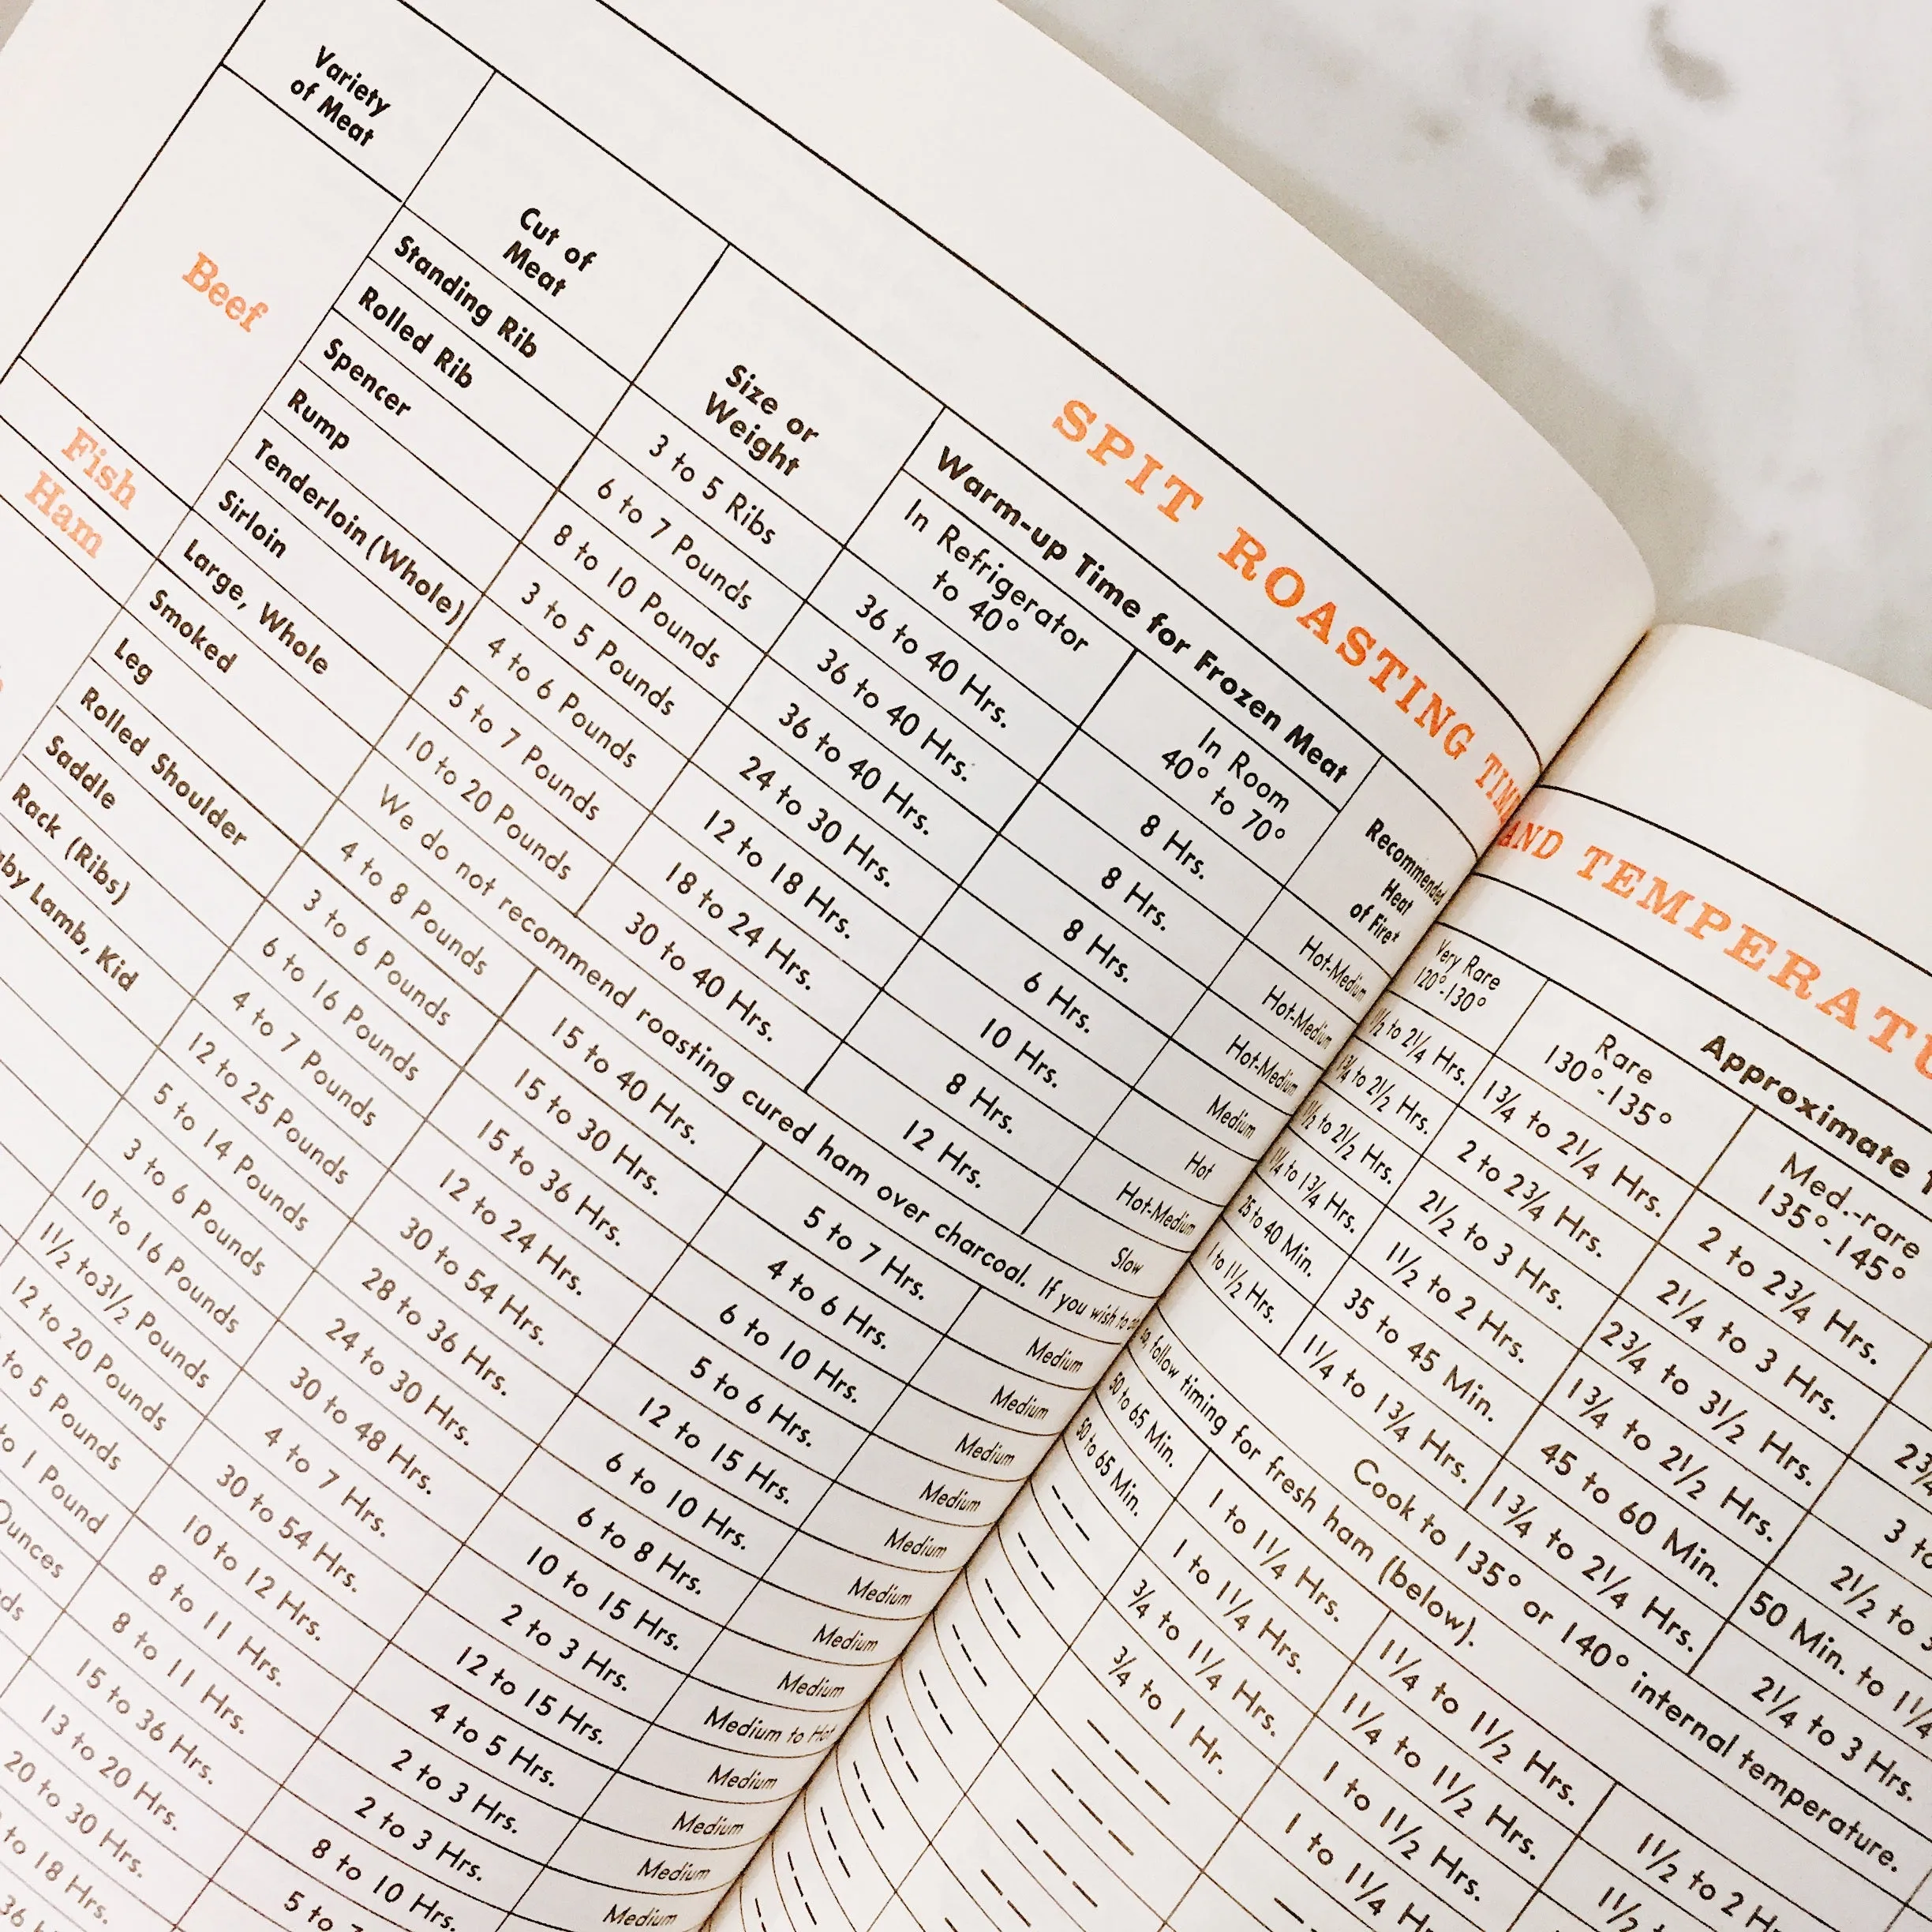 SPIT ROASTING TIME AND TEMPERATU
Variety
of Meat
Cut of
Meat
Size or
Weight
Warm-up Time for Frozen Meat
In Refrigerator
to 40°
In Room
40° to 70°
Recommended
Heat
of Fire*
Approximate
Very Rare
120°-130°
Rare
130°-135°
Med.-rare
135°-145°
Beef
Standing Rib 3 to 5 Ribs 36 to 40 Hrs. 8 Hrs. Hot-Medium 1½ to 2¼ Hrs. 1¾ to 2¼ Hrs. 2 to 2¾ Hrs.
Rolled Rib 6 to 7 Pounds 36 to 40 Hrs. 8 Hrs. Hot-Medium 1¾ to 2½ Hrs. 2 to 2¾ Hrs. 2¼ to 3 Hrs. 2¾
Spencer 8 to 10 Pounds 36 to 40 Hrs. 8 Hrs. Hot-Medium 1½ to 2½ Hrs. 2½ to 3 Hrs. 2¾ to 3½ Hrs. 3 to
Rump 3 to 5 Pounds 24 to 30 Hrs. 6 Hrs. Medium 1¼ to 1¾ Hrs. 1½ to 2 Hrs. 1¾ to 2½ Hrs. 2½ to
Tenderloin (Whole) 4 to 6 Pounds 12 to 18 Hrs. 10 Hrs. Hot 25 to 40 Min. 35 to 45 Min. 45 to 60 Min. 50 Min. to 1¼
Sirloin 5 to 7 Pounds 18 to 24 Hrs. 8 Hrs. Hot-Medium 1 to 1½ Hrs. 1¼ to 1¾ Hrs. 1¾ to 2¼ Hrs. 2¼ to 3 Hrs.
Fish Large, Whole 10 to 20 Pounds 30 to 40 Hrs. 12 Hrs. Slow Cook to 135° or 140° internal temperature.
Ham Smoked We do not recommend roasting cured ham over charcoal. If you wish to do so, follow timing for fresh ham (below).
Leg 4 to 8 Pounds 15 to 40 Hrs. 5 to 7 Hrs. Medium 50 to 65 Min. 1 to 1¼ Hrs. 1¼ to 1½ Hrs. 1½ to 2 Hrs.
Rolled Shoulder 3 to 6 Pounds 15 to 30 Hrs. 4 to 6 Hrs. Medium 50 to 65 Min. 1 to 1¼ Hrs. 1¼ to 1½ Hrs. 1½
Saddle 6 to 16 Pounds 15 to 36 Hrs. 6 to 10 Hrs. Medium --- ¾ to 1¼ Hrs. 1 to 1½ Hrs.
Rack (Ribs) 4 to 7 Pounds 12 to 24 Hrs. 5 to 6 Hrs. Medium --- ¾ to 1 Hr. 1 to 1¼ Hrs.
by Lamb, Kid 12 to 25 Pounds 30 to 54 Hrs. 12 to 15 Hrs. Medium
5 to 14 Pounds 28 to 36 Hrs. 6 to 10 Hrs. Medium
3 to 6 Pounds 24 to 30 Hrs. 6 to 8 Hrs. Medium
10 to 16 Pounds 30 to 48 Hrs. 10 to 15 Hrs. Medium
1½ to 3½ Pounds 4 to 7 Hrs. 2 to 3 Hrs. Medium to Hot
12 to 20 Pounds 30 to 54 Hrs. 12 to 15 Hrs. Medium
to 5 Pounds 10 to 12 Hrs. 4 to 5 Hrs. Medium
to 1 Pound 8 to 11 Hrs. 2 to 3 Hrs. Medium
Ounces 8 to 11 Hrs. 2 to 3 Hrs. Medium
15 to 36 Hrs. 8 to 10 Hrs.
13 to 20 Hrs. 5 to
20 to 30 Hrs.
to 18 Hrs.